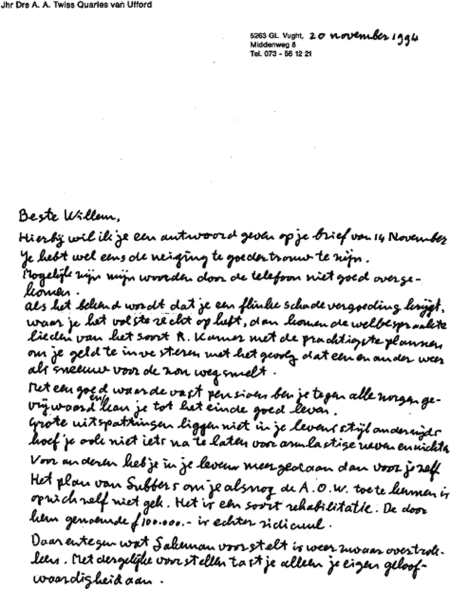 Jhr Drs A. A. Twiss Quarles van Ufford
5263 GL Vught, 20 november 1994
Middenweg 8
Tel. 073 - 56 12 21
Beste Willem,
Hierbij wil ik je een antwoord geven op je brief van 14 November
Je hebt wel eens de neiging te goeder trouw te zijn.
Mogelijk zijn mijn woorden door de telefoon niet goed overge-
komen.
Als het bekend wordt dat je een flinke schadevergoeding krijgt,
waar je het volste recht op hebt, dan komen de welbespraakte
lieden van het soort R. Kamer met de prachtigste plannen
om je geld te investeren met het gevolg dat een en ander weer
als sneeuw voor de zon wegsmelt.
Met een goed waardevast pensioen ben je tegen alle zorgen ge-
vrijwaard en kan je tot het einde goed leven.
Grote uitspattingen liggen niet in je levensstijl anderzijds
hoef je ook niet iets na te laten voor armlastige neven en nichten
Voor anderen heb je in je leven meer gedaan dan voor jezelf
Het plan van Subbers om je alsnog de A.O.W. toe te kennen is
op zich zelf niet gek. Het is een soort rehabilitatie. De door
hem genoemde ƒ 100.000.- is echter ridicuul.
Daarentegen wat Sakeman voorstelt is weer zwaar overtrok-
ken. Met dergelijke voorstellen tast je alleen je eigen geloof-
waardigheid aan.